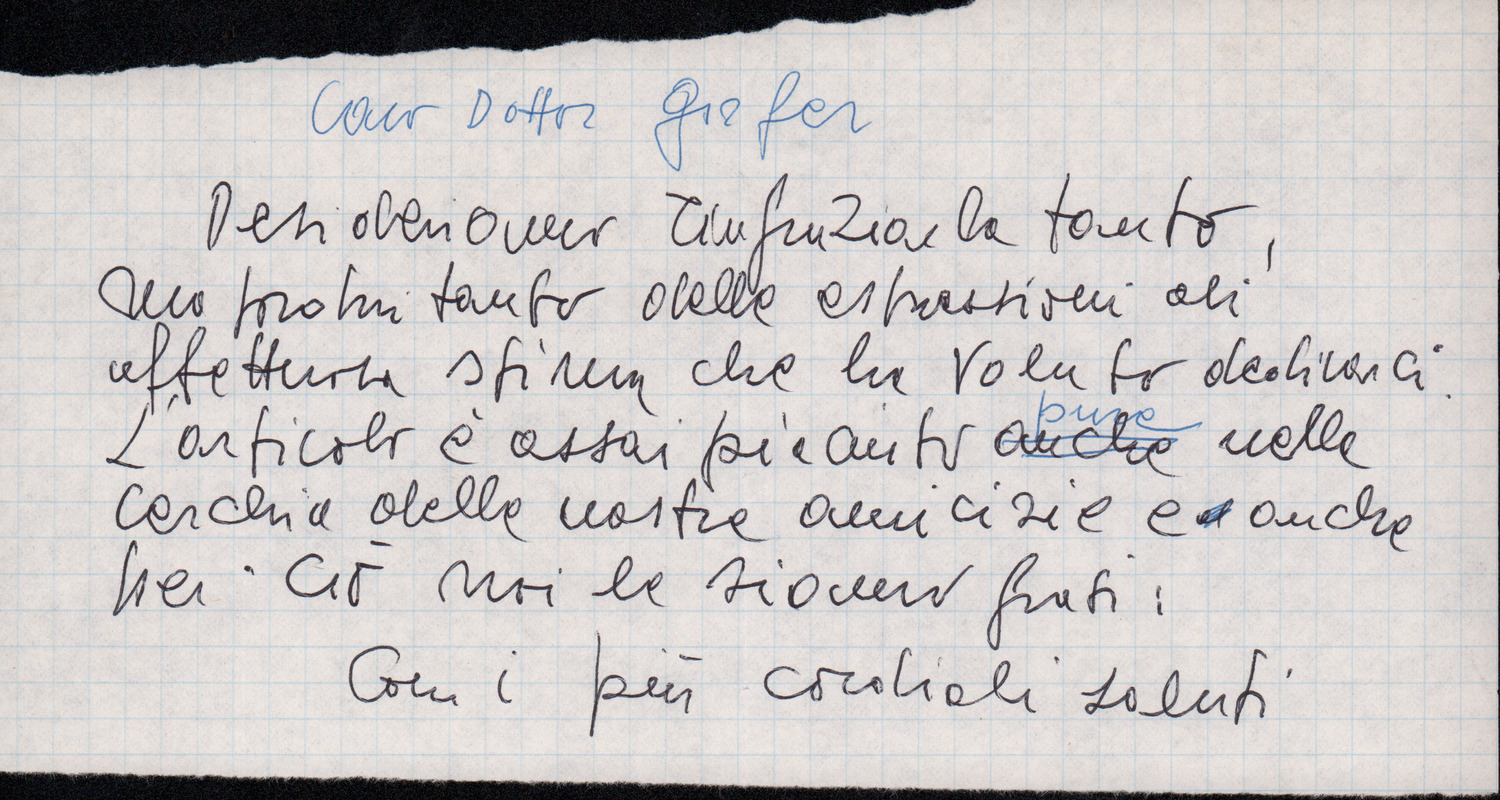 Caro Dottor Grafer
Desideriamo ringraziarla tanto,
ma proprio tanto delle espressioni di
affettuosa stima che ha voluto dedicarci.
L'articolo è assai piaciuto pure nella
cerchia delle nostre amicizie e anche
per ciò noi le siamo grati:
Con i più cordiali saluti